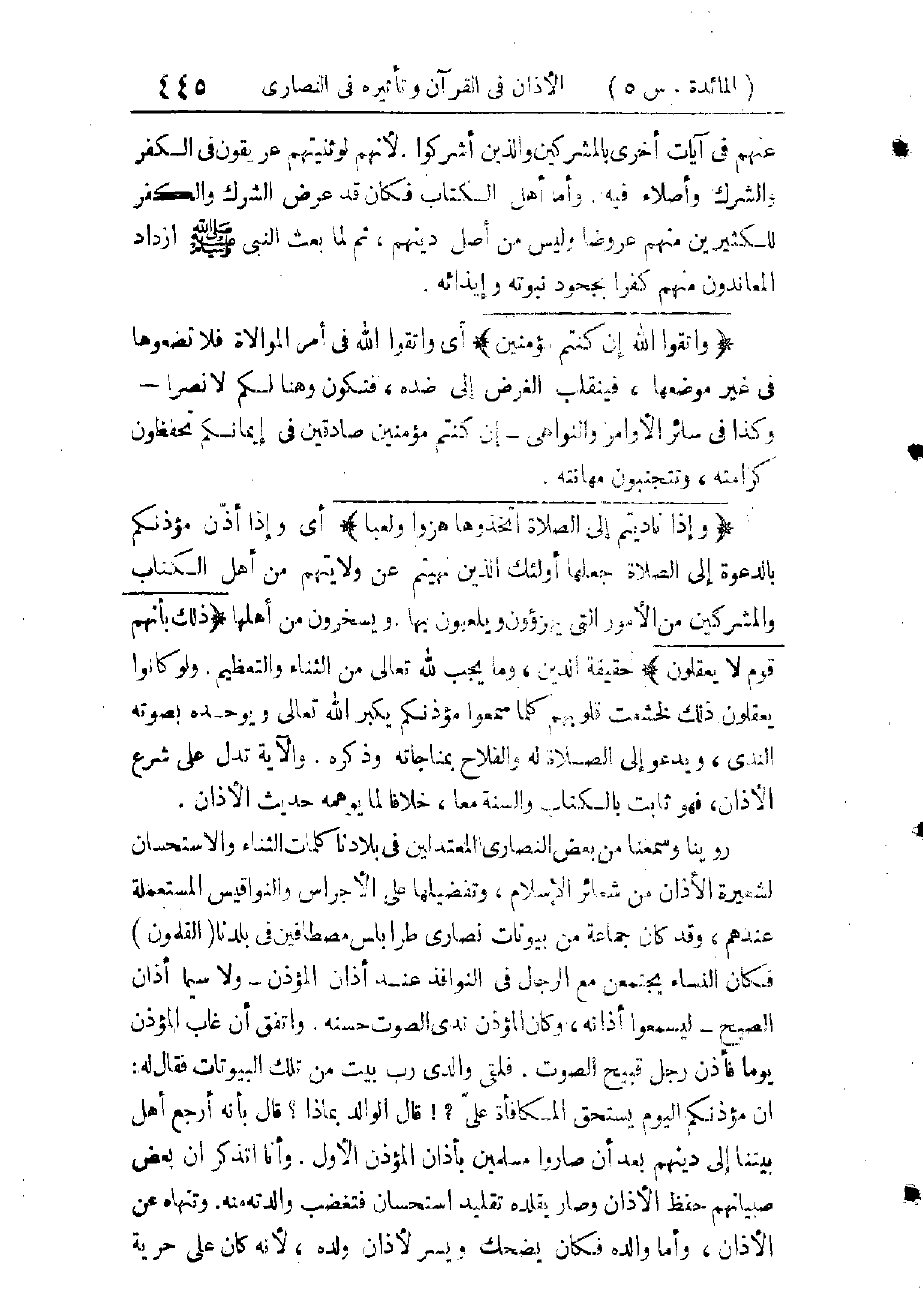 ( المائدة . س ٥ ) الأذان فى القرآن وتأثيره فى النصارى ٤٤٥
عنهم فى آيات أخرى بالمشركين والذين أشركوا . لأنهم لوثنيتهم عريقون فى الكفر
والشرك وأصلاء فيه . وأما أهل الكتاب فكان قد عرض الشرك والكفر
للكثيرين منهم عروضا وليس من أصل دينهم ، ثم لما بعث النبى ﷺ ازداد
المعاندون منهم كفرا بجحود نبوته وإيذائه .
﴿ واتقوا الله إن كنتم مؤمنين ﴾ أى واتقوا الله فى أمر الموالاة فلا تضعوها
فى غير موضعها ، فينقلب الغرض إلى ضده ، فتكون وهنا لكم لا نصرا –
وكذا فى سائر الأوامر والنواهى – إن كنتم مؤمنين صادقين فى إيمانكم تحفظون
كرامته ، وتتجنبون مهانته .
﴿ وإذا ناديتم إلى الصلاة اتخذوها هزوا ولعبا ﴾ أى وإذا أذّن مؤذنكم
بالدعوة إلى الصلاة جعلها أولئك الذين نهيتم عن ولايتهم من أهل الكتاب
والمشركين من الأمور التى يهزؤون ويلعبون بها . ويسخرون من أهلها ﴿ ذلك بأنهم
قوم لا يعقلون ﴾ حقيقة الدين ، وما يجب لله تعالى من الثناء والتعظيم . ولو كانوا
يعقلون ذلك لخشعت قلوبهم كلما سمعوا مؤذنكم يكبر الله تعالى ويوحده بصوته
الندى ، ويدعو إلى الصلاة له والفلاح بمناجاته وذكره . والآية تدل على شرع
الأذان، فهو ثابت بالكتاب والسنة معا ، خلافا لما يوهمه حديث الأذان .
روينا وسمعنا من بعض النصارى المعتدلين فى بلادنا كلمات الثناء والاستحسان
لشعيرة الأذان من شعائر الإسلام ، وتفضيلها على الأجراس والنواقيس المستعملة
عندهم ، وقد كان جماعة من بيوتات نصارى طرابلس مصطافين فى بلدنا ( القلمون )
فكان النساء يجتمعن مع الرجال فى النوافذ عند أذان المؤذن – ولا سيما أذان
الصبح – ليسمعوا أذانه ، وكان المؤذن ندى الصوت حسنه . واتفق أن غاب المؤذن
يوما فأذن رجل قبيح الصوت . فلقى والدى رب بيت من تلك البيوتات فقال له :
ان مؤذنكم اليوم يستحق المكافأة علىّ ؟ ! قال الوالد بماذا ؟ قال بأنه أرجع أهل
بيتنا إلى دينهم بعد أن صاروا مسلمين بأذان المؤذن الأول . وأنا اتذكر ان بعض
صبيانهم حفظ الأذان وصار يقلده تقليد استحسان فتغضب والدته منه. وتنهاه عن
الأذان ، وأما والده فكان يضحك ويسر لأذان ولده ، لأنه كان على حرية